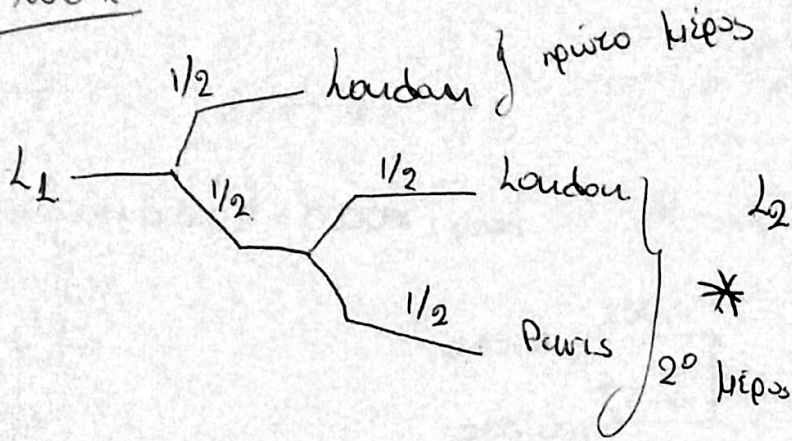 1/2 London } πρώτο μέρος
L1 1/2 1/2 London L2
*
1/2 Paris 2º μέρος